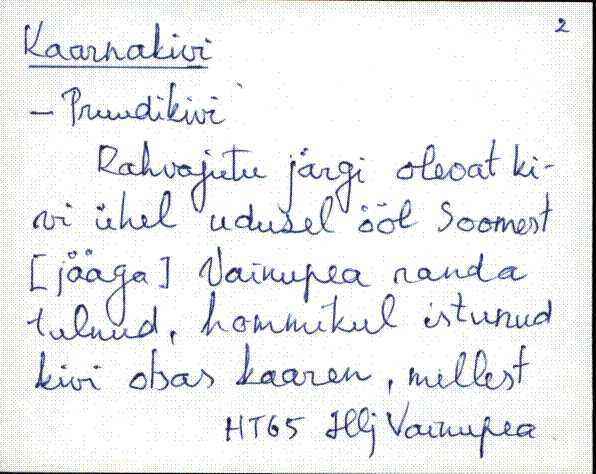 2
Kaarnakivi
- Pruudikivi
Rahvajutu järgi olevat ki-
vi ühel udusel ööl Soomest
[jääga] Vainupea randa
tulnud, hommikul istunud
kivi otsas kaaren, millest
HT65 Hlj Vainupea